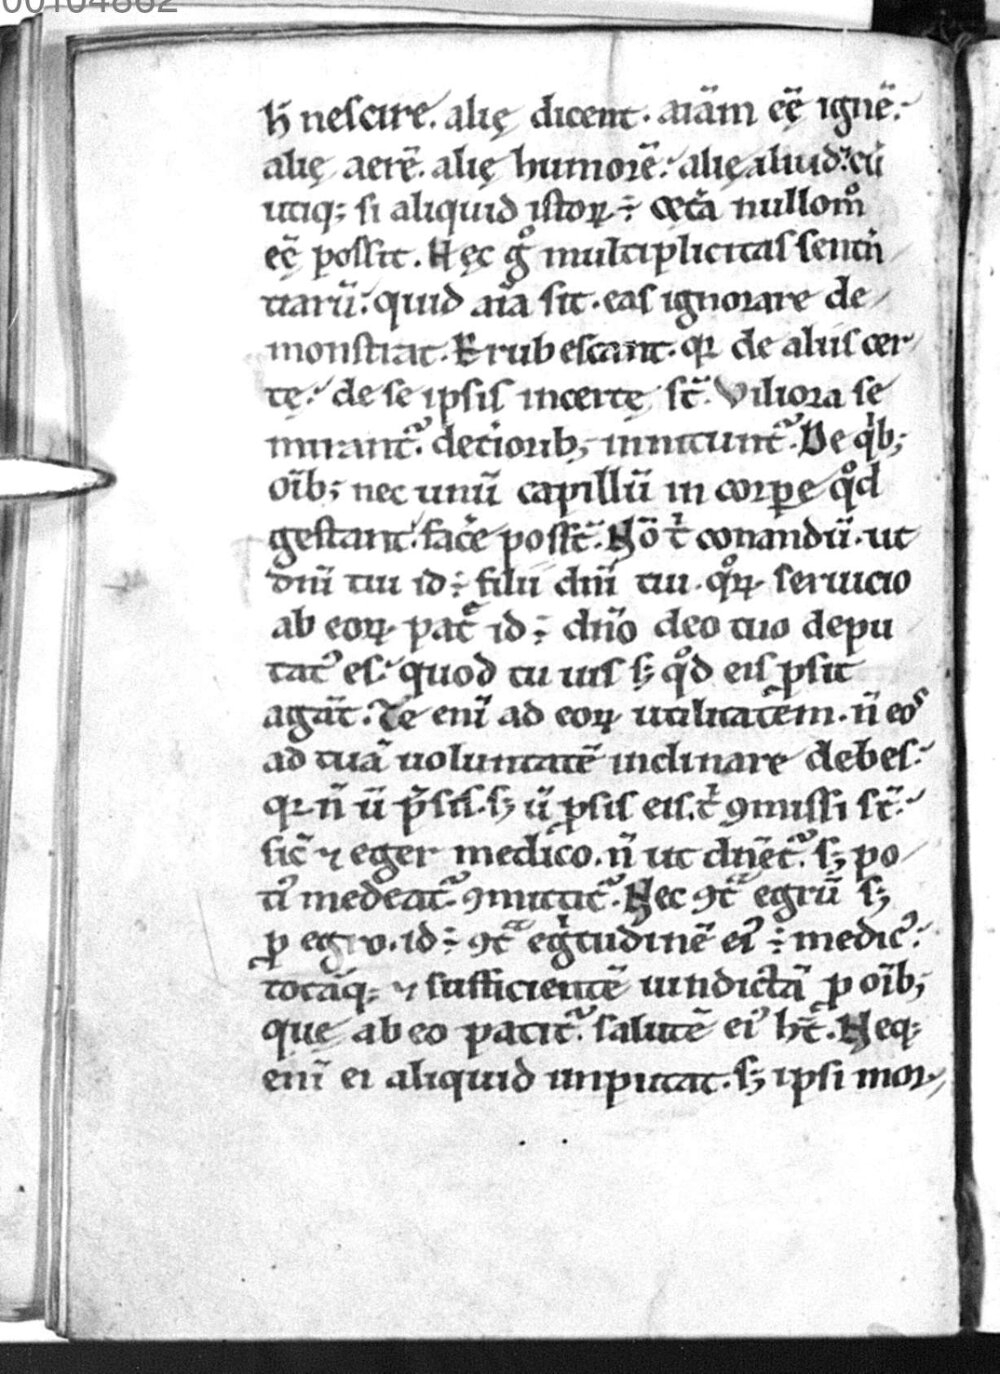 00104862
h̄ nescire. alię dicent. aiam̄ eę̄ ignē.
alię aerē. alię humorē. alię aliud. cū
utiq; si aliquid istoꝝ ÷ cęta̅ nullom̊
eē possit. Hęc g̊ multiplicitas senten
tiarū. quid aīa sit. eas ignorare de
monstrat. Erubescant. qꝛ de aliis cer
tę. de se ipsis incertę st̄. Viliora se
mirant᷑. deteriorib; innitunt᷑. De qͥb;
oīb; nec unū capillū in corpore qͦd
gestant. facͤe possē. Nō t̄ conandū. ut
dn̄i tui id ÷ filii dn̄i tui. qͦꝝ seruicio
ab eoꝝ pat̄ id ÷ dn̄o deo tuo depu
tat᾿ es. quod tu uis sꝫ qͦd eis ꝓsit
agāt. Te eni̅ ad eoꝝ utilitatem. n̄ eos
ad tuā uoluntatē inclinare debes.
qꝛ n̄ ū p̄sis. sꝫ ū ꝓsis eis. t̄ ꝯmissi st̄.
sic̄ ⁊ eger medico. n̄ ut dn̄et᷑. sꝫ po
ti᾿ medeat᷑ ꝯmittit᷑. Nec ꝯᵗ egrū sꝫ
ꝑ egro. id ÷ ꝯᵗ egͥtudinē ei᾿ ÷ medic᾿.
totāq; ⁊ sufficientē uindictā ꝓ oīb;
quę ab eo patit᷑. salutē ei᾿ ht̄. Neq;
eni̅ ei aliquid inputat. sꝫ ipsi mor